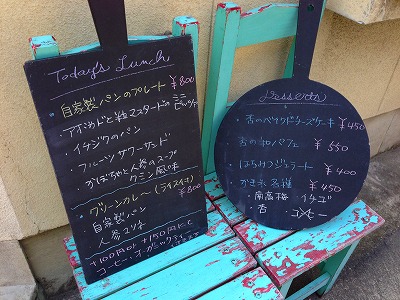 Today's Lunch
自家製パンのプレート ¥800
・アボカドと粒マスタードの
・イチジクのパン
・フルーツサワーサンド
・かぼちゃと人参のスープ
クミン風味
・グリーンカレー(ライス付き)
¥800
・自家製パン
・人参
+100円 +150円
コーヒー
Desserts
・杏のベイクドチーズケーキ ¥450
・杏の和パフェ ¥550
・はちみつジェラート ¥400
・かき氷各種 ¥450
南高梅 イチゴ
杏 コーヒー